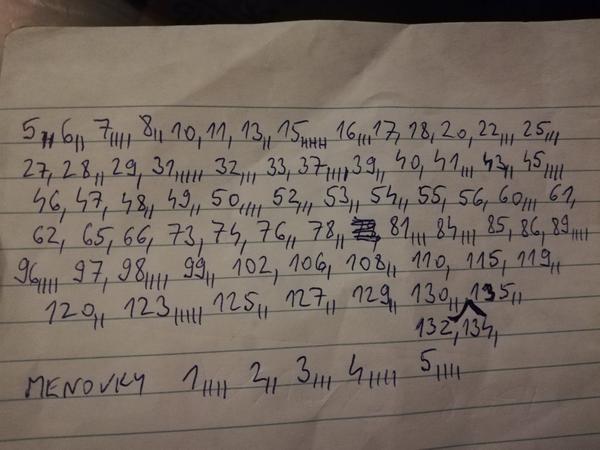 5,, 6,, 7,,,, 8,, 10, 11, 13,, 15,,,,, 16,,, 17, 18, 20, 22,,, 25,,,
27, 28,, 29, 31,,,,, 32,,, 33, 37,,,,, 39,, 40, 41,,, 43,, 45,,,,
46, 47, 48,, 49,, 50,,,, 52,,, 53,, 54,, 55, 56, 60,,, 61,
62, 65, 66, 73, 74, 76,, 78,, 81,,, 84,,, 85, 86, 89,,,,
96,,,, 97, 98,,,, 99,, 102, 106, 108,, 110, 115, 119,,
120,, 123,,,,, 125,, 127,, 129,, 130,, 135,,
132, 134,
MENOVKY 1,,,, 2,, 3,,, 4,,,, 5,,,,